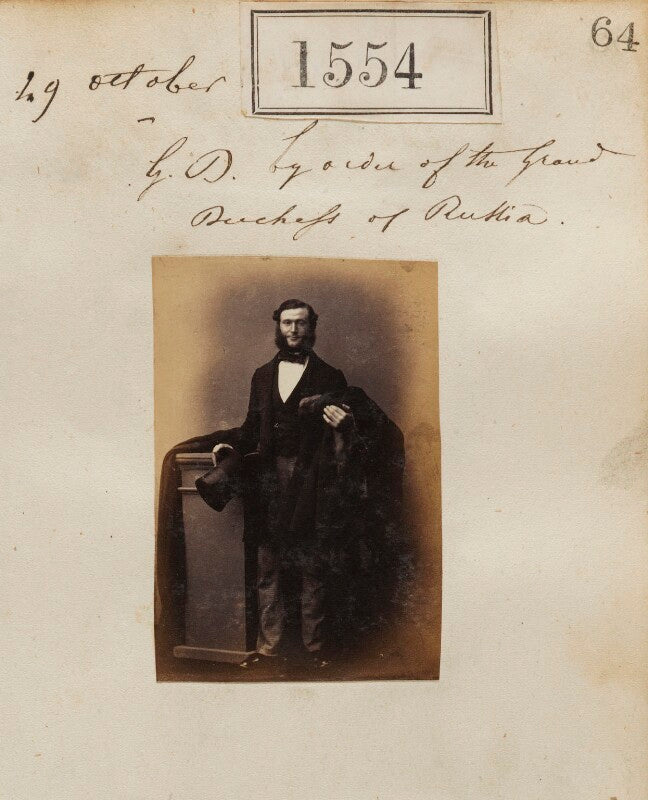 1554
64
29 october
G. D. by order of the Grand
Duchess of Russia.